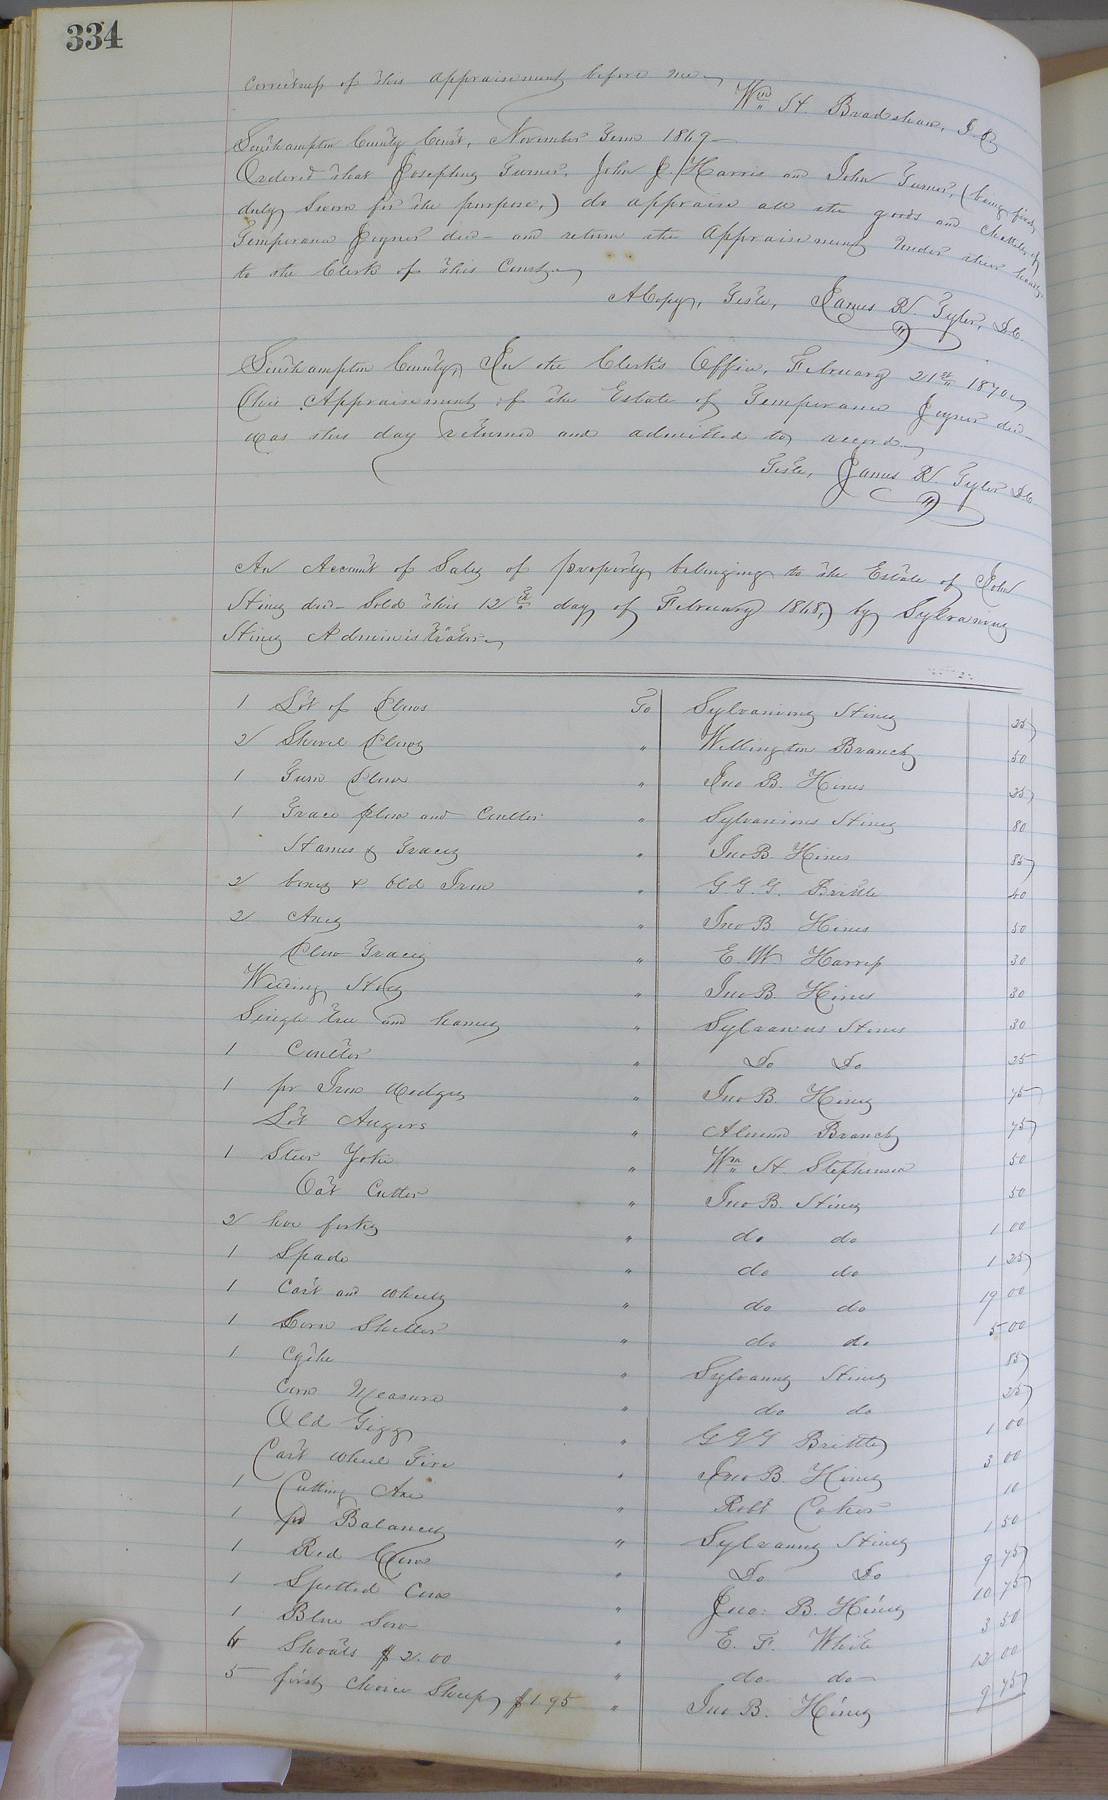 334
Correctness of this appraisement before me
Wm H. Bradshaw, J.P.
Southampton County Court, November Term 1869
Ordered that Josephus Turner, John J. Harris and John Turner, (being first
duly sworn for the purpose,) do appraise all the goods and chattels of
Temperance Joyner decd and return the appraisement under their hands
to the Clerk of this Court
A Copy, Teste, James R. Tyler, D.C.
Southampton County, In the Clerk's Office, February 21st 1870
This Appraisement of the Estate of Temperance Joyner decd
was this day returned and admitted to record
Teste, James R. Tyler D.C.
An Account of Sales of property belonging to the Estate of John
Hines decd Sold this 12th day of February 1868, by Sylvanus
Hines Administrator
1 Lot of Plows To Sylvanious Hines 25
2 Shovel Plows " Wellington Branch 50
1 Turn Plow " Jno B. Hines 25
1 Trace plow and Coulter " Sylvanious Hines 80
Hames & Traces " Jno B. Hines 85
2 & Old Iron " G.G.G. Brittle 40
2 Axes " Jno B. Hines 50
Plow Traces " E. W. Harriss 30
Weeding Hoes " Jno B. Hines 30
Single tree and hames " Sylvanus Hines 30
1 Coulter " Do Do 25
1 pr Iron Wedges " Jno B. Hines 75
Lot Augers " Branch 75
1 Steer Yoke " Wm H. Stephenson 50
Oat Cutter " Jno B. Hines 50
2 hoe forks " do do 1 00
1 Spade " do do 1 25
1 Cart and wheels " do do 19 00
1 Corn Sheller " do do 5 00
1 Cythe " Sylvanus Hines 85
Corn Measure " do do 25
Old Gigg " G G G Brittle 1 00
Cart Wheel Tire " Jno B. Hines 3 00
1 Cutting Axe " Robt Coker 10
1 pr Balances " Sylvanus Hines 1 50
1 Red Cow " Do Do 9 75
1 Spotted Cow " Jno: B. Hines 10 75
1 Blue Sow " E. F. White 3 50
6 Shoats $2.00 " do do 12 00
5 first choice Sheep $1.95 " Jno B. Hines 9 75